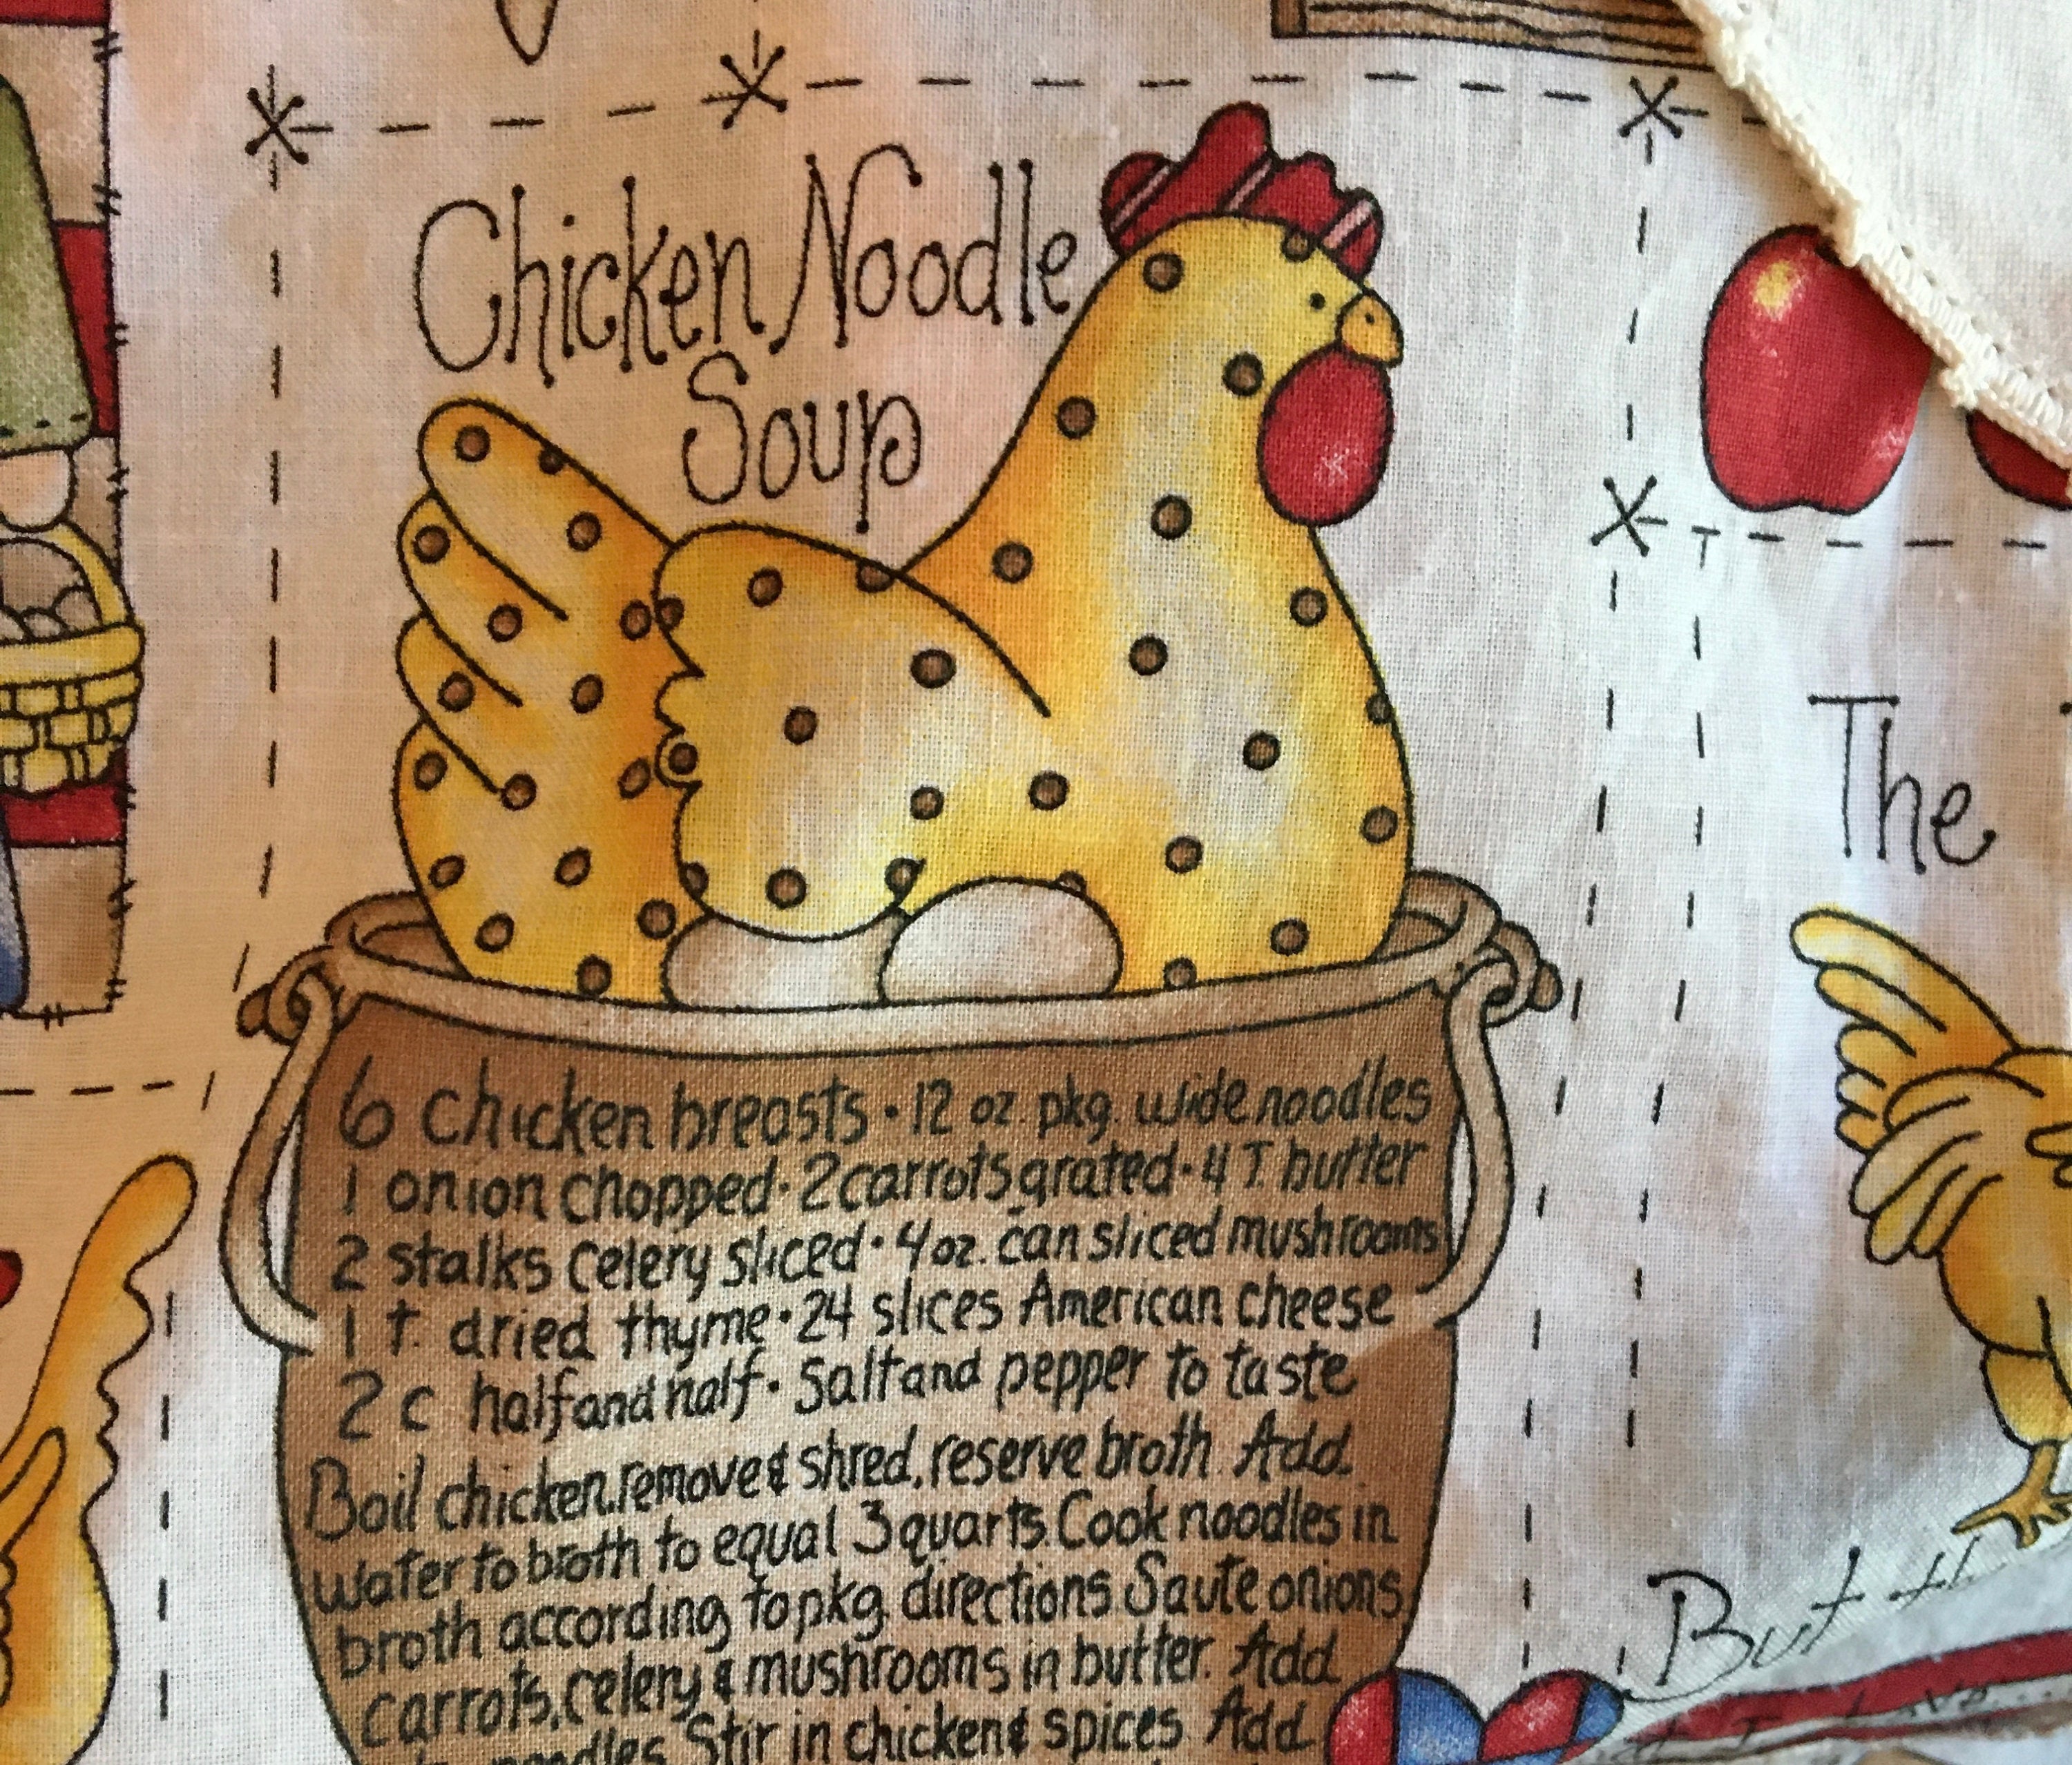 Chicken Noodle
Soup
6 chicken breasts • 12 oz. pkg. wide noodles
1 onion chopped • 2 carrots grated • 4 T. butter
2 stalks celery sliced • 4 oz. can sliced mushrooms
1 t. dried thyme • 24 slices American cheese
2 c half and half • Salt and pepper to taste
Boil chicken, remove & shred, reserve broth. Add
water to broth to equal 3 quarts. Cook noodles in
broth according to pkg. directions. Saute onions,
carrots, celery & mushrooms in butter. Add
noodles. Stir in chicken & spices. Add
The
But